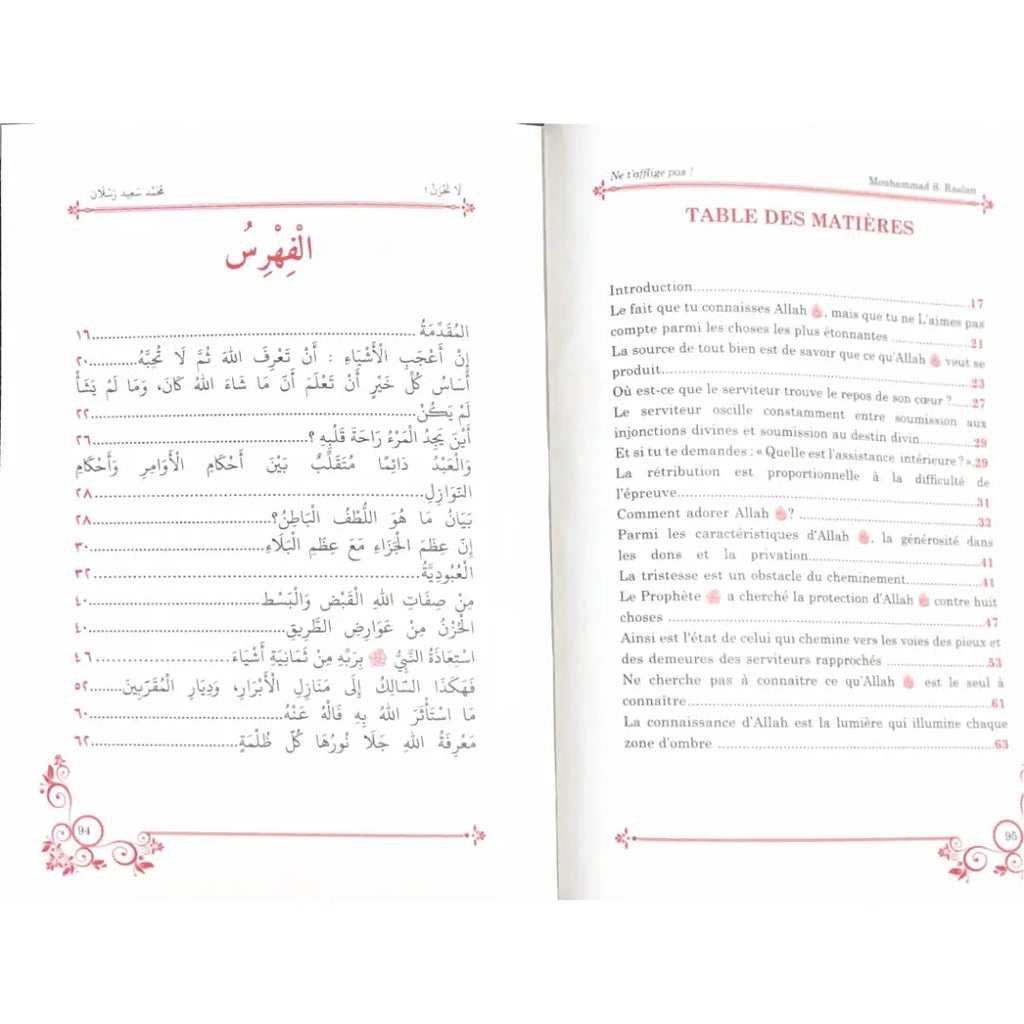 لَا تَحْزَنْ !
مُحَمَّد سَعِيد رَسْلَان
الْفِهْرِسُ
المُقَدِّمَةُ ........ ١٦
إِنْ أَعْجَبِ الْأَشْيَاءِ : أَنْ تَعْرِفَ اللهَ ثُمَّ لَا تُحِبَّهُ ........ ٢٠
أَسَاسُ كُلِّ خَيْرٍ أَنْ تَعْلَمَ أَنَّ مَا شَاءَ اللهُ كَانَ، وَمَا لَمْ يَشَأْ
لَمْ يَكُنْ ........ ٢٢
أَيْنَ يَجِدُ الْمَرْءُ رَاحَةَ قَلْبِهِ ؟ ........ ٢٦
وَالْعَبْدُ دَائِمًا مُتَقَلِّبٌ بَيْنَ أَحْكَامِ الْأَوَامِرِ وَأَحْكَامِ
النَّوَازِلِ ........ ٢٨
بَيَانُ مَا هُوَ اللُّطْفُ الْبَاطِنُ؟ ........ ٢٨
إِنَّ عِظَمَ الْجَزَاءِ مَعَ عِظَمِ الْبَلَاءِ ........ ٣٠
الْعُبُودِيَّةُ ........ ٣٢
مِنْ صِفَاتِ اللهِ الْقَبْضِ وَالْبَسْط ........ ٤٠
الْحُزْنُ مِنْ عَوَارِضِ الطَّرِيقِ ........ ٤٠
اسْتِعَاذَةُ النَّبِيِّ ﷺ بِرَبِّهِ مِنْ ثَمَانِيَةِ أَشْيَاءَ ........ ٤٦
فَهَكَذَا السَّالِكُ إِلَى مَنَازِلِ الْأَبْرَارِ، وَدِيَارِ الْمُقَرَّبِينَ ........ ٥٢
مَا اسْتَأْثَرَ اللهُ بِهِ فَالْهُ عَنْهُ ........ ٦٠
مَعْرِفَةُ اللهِ جَلَا نُورُهَا كُلَّ ظُلْمَةٍ ........ ٦٢
94
Ne t'afflige pas !
Mouhammad S. Raslan
TABLE DES MATIÈRES
Introduction ........ 17
Le fait que tu connaisses Allah, mais que tu ne L'aimes pas
compte parmi les choses les plus étonnantes ........ 21
La source de tout bien est de savoir que ce qu'Allah veut se
produit ........ 23
Où est-ce que le serviteur trouve le repos de son cœur ? ...... 27
Le serviteur oscille constamment entre soumission aux
injonctions divines et soumission au destin divin ........ 29
Et si tu te demandes : « Quelle est l'assistance intérieure ? ». 29
La rétribution est proportionnelle à la difficulté de
l'épreuve ........ 31
Comment adorer Allah ? ........ 33
Parmi les caractéristiques d'Allah, la générosité dans
les dons et la privation ........ 41
La tristesse est un obstacle du cheminement ........ 41
Le Prophète ﷺ a cherché la protection d'Allah contre huit
choses ........ 47
Ainsi est l'état de celui qui chemine vers les voies des pieux et
des demeures des serviteurs rapprochés ........ 53
Ne cherche pas à connaître ce qu'Allah est le seul à
connaître ........ 61
La connaissance d'Allah est la lumière qui illumine chaque
zone d'ombre ........ 63
95